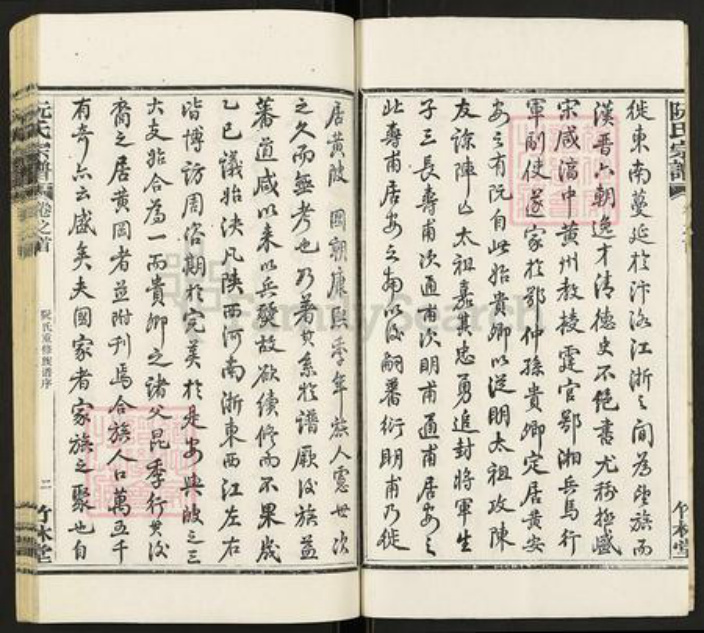 阮氏宗譜
徙東南蔓延於汴洛江浙之間為望族而
漢晉六朝逸才清德史不絕書尤稱極盛
宋咸淳中黃州教授霆官鄂湘兵馬行
軍副使遂家於鄂仲孫貴卿定居黃安
安之有阮自此始貴卿以從明太祖攻陳
友諒陣亡太祖嘉其忠勇追封將軍生
子三長壽甫次通甫次明甫通甫居安之
此壽甫居安之南以後嗣蕃衍明甫乃徙
竹林堂
居黃陂 國朝康熙季年族人憲世次
之久而無考也乃著其系於譜厥後族益
蕃道咸以來以兵發故欲續修而不果歲
乙巳議始決凡陝西河南浙東西江左右
皆博訪周洽期於完美於是安與陂之三
大支始合為一而貴卿之諸父昆季行其後
裔之居黃岡者並附刊焉合族人口萬五千
有奇亦云盛矣夫國家者家族之聚也自
阮氏宗譜
卷之首
阮氏重修族譜序
二
竹林堂
FamilySearch